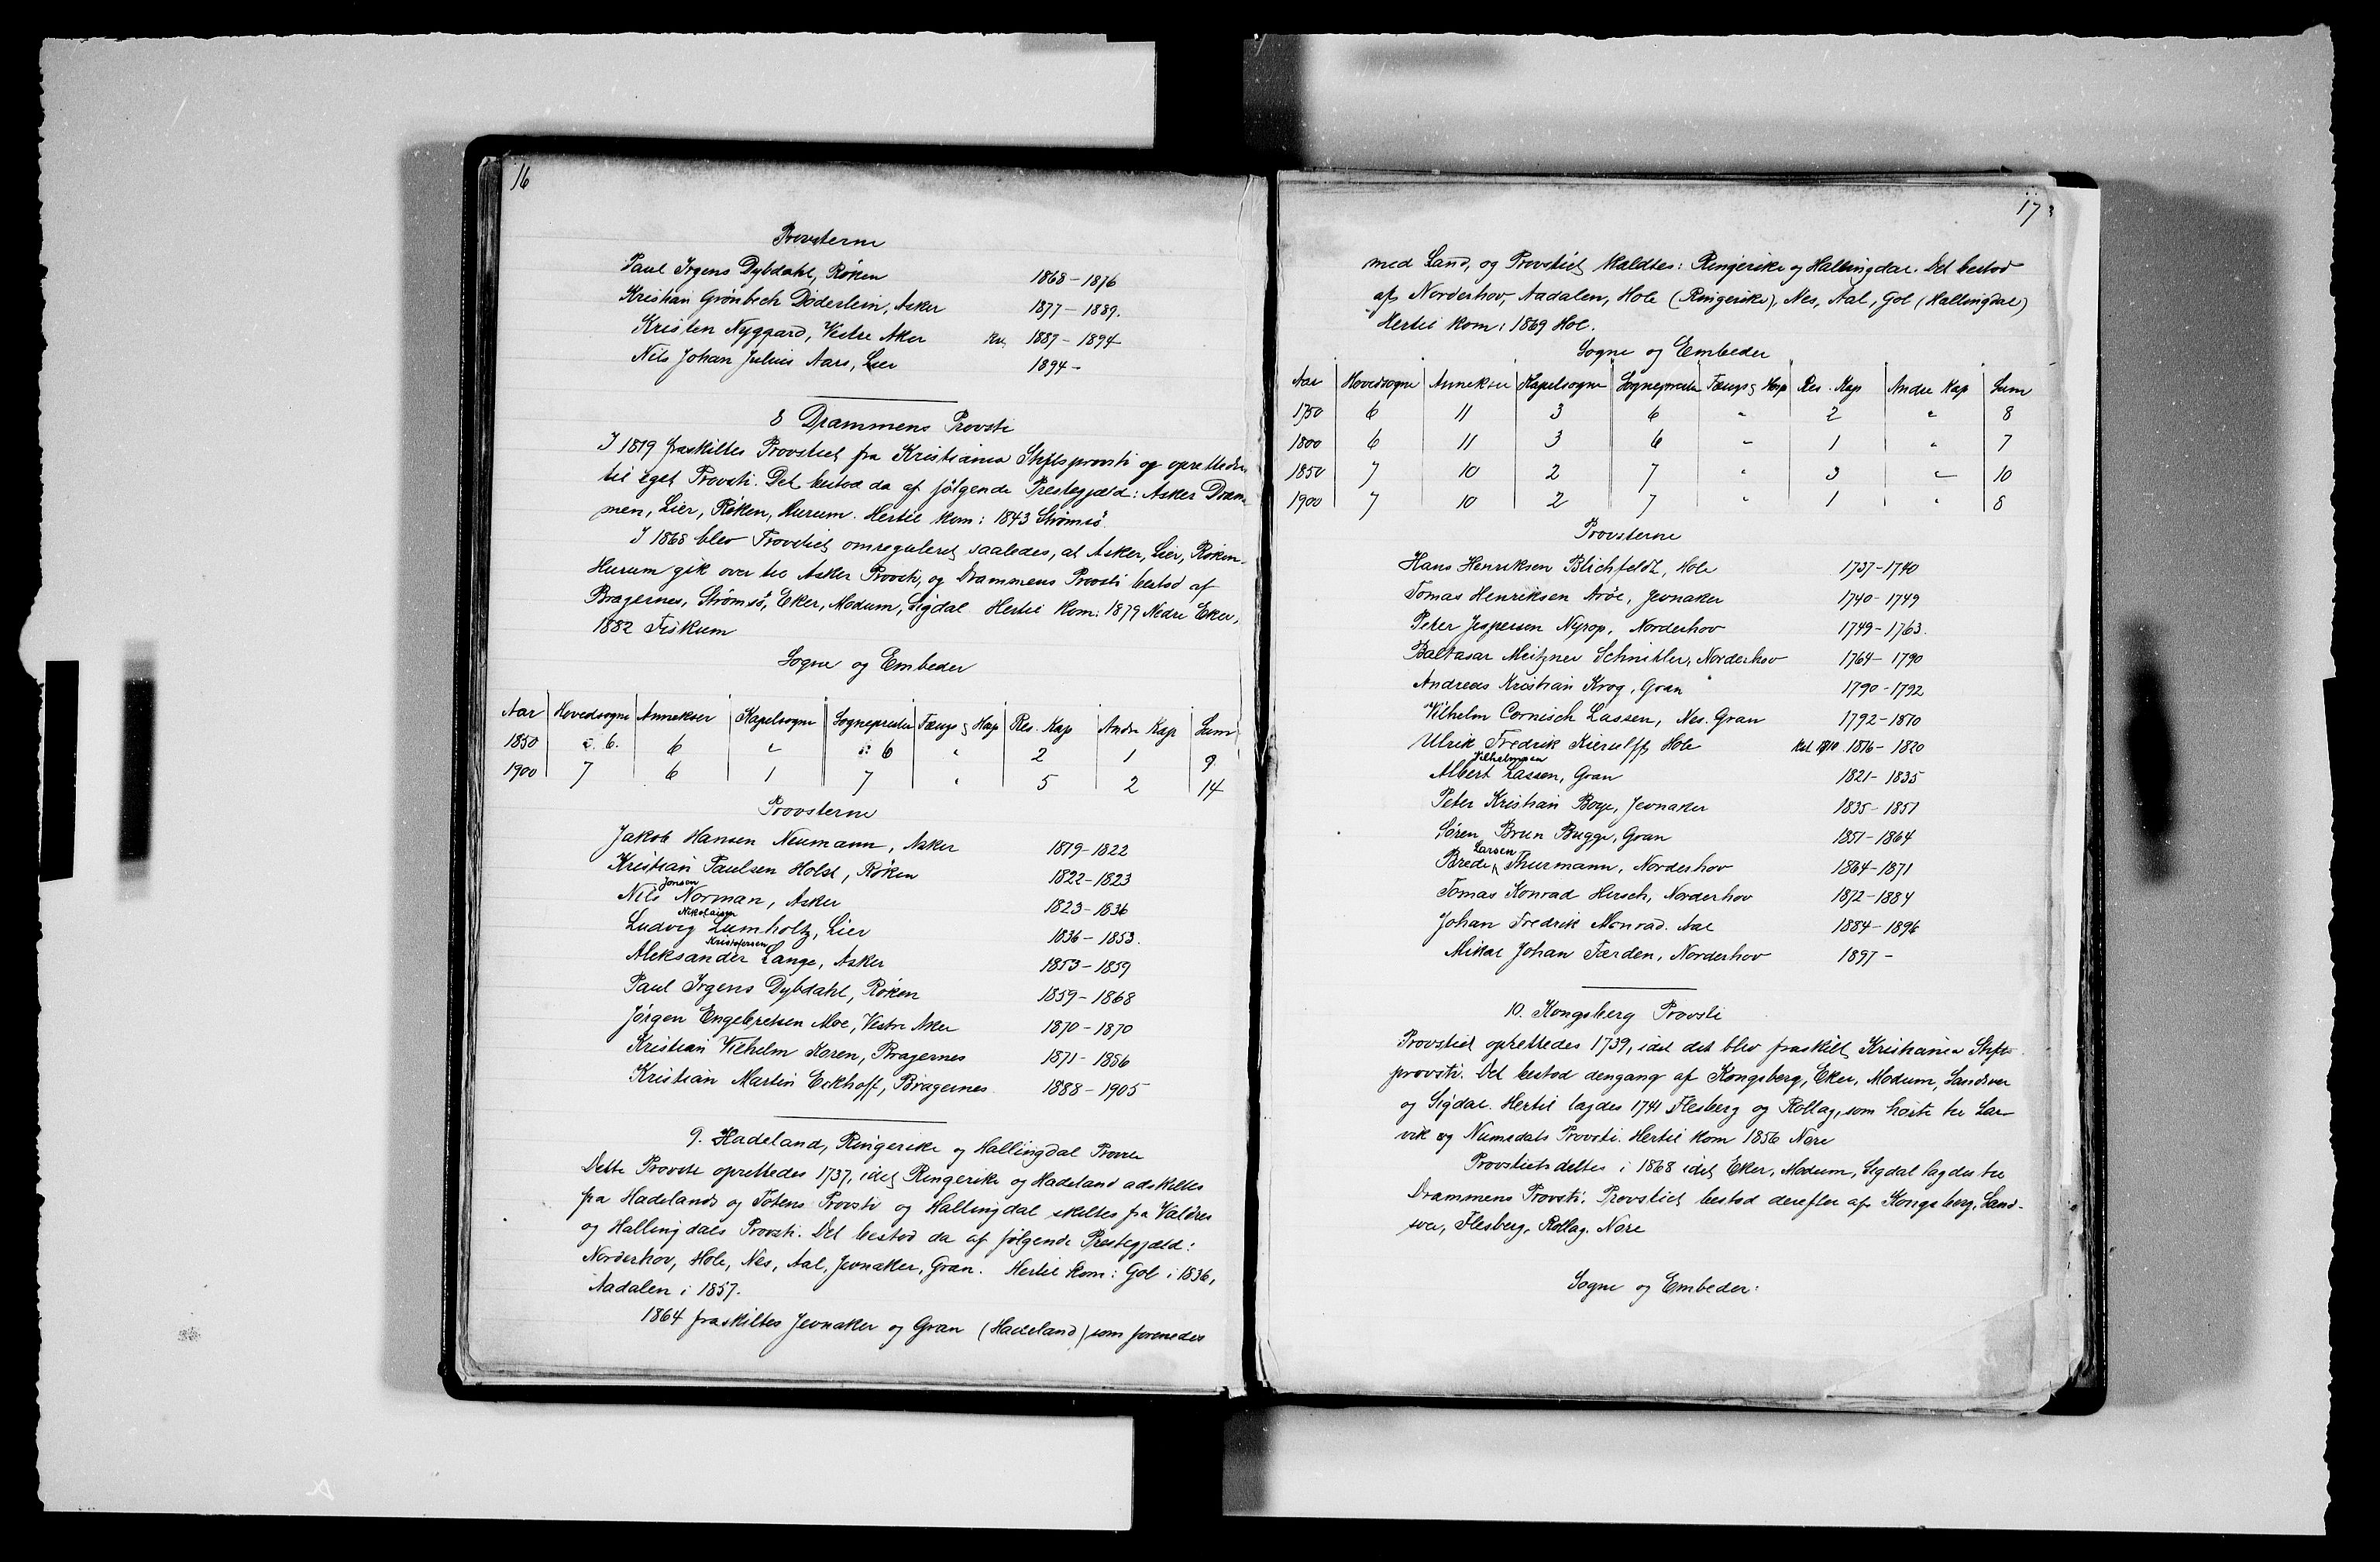 16
Provsterne
Paul Irgens Dybdahl, Røken 1868 – 1876
Kristian Grønbech Døderlein, Asker 1877 – 1889.
Kristen Nygaard, Vestre Aker 1887 – 1894
Nils Johan Julius Aars, Lier 1894 –
8 Drammens Provsti
I 1819 fraskiltes Provstiet fra Kristiania Stiftsprovsti og oprettedes
til eget Provsti. Det bestod da af følgende Prestegjæld: Asker Dram-
men, Lier, Røken, Hurum. Hertil kom: 1843 Strømsø.
I 1868 blev Provstiet omreguleret saaledes, at Asker, Lier, Røken
Hurum gik over til Asker Provsti, og Drammens Provsti bestod af
Bragernes, Strømsø, Eker, Modum, Sigdal Hertil kom: 1879 Nedre Eker,
1882 Fiskum
Sogne og Embeder
Aar Hovedsogne Annekser Kapelsogne Sogneprester Fængs & Hosp Res. Kap Andre Kap Sum
1850 6. 6 " 6 " 2 1 9
1900 7 6 1 7 " 5 2 14
Provsterne
Jakob Hansen Neumann, Asker 1819–1822
Kristian Paulsen Holst, Røken 1822–1823
Nils Jonsen Norman, Asker 1823–1836
Ludvig Nikolaisen Lumholtz, Lier 1836 – 1853.
Aleksander Kristofersen Lange, Asker 1853–1859
Paul Irgens Dybdahl, Røken 1859–1868
Jørgen Engebretsen Moe, Vestre Aker 1870–1870
Kristian Vilhelm Koren, Bragernes 1871–1886
Kristian Martin Eckhoff, Bragernes 1888–1905
9. Hadeland, Ringerike og Hallingdal Provsti
Dette Provsti oprettedes 1737, idet Ringerike og Hadeland adskiltes
fra Hadelands og Totens Provsti og Hallingdal skiltes fra Valdres
og Hallingdals Provsti. Det bestod da af følgende Prestegjæld:
Norderhov, Hole, Nes, Aal, Jevnaker, Gran. Hertil kom: Gol i 1836,
Aadalen i 1857.
1864 fraskiltes Jevnaker og Gran (Hadeland) som forenedes
17
med Land, og Provstiet kaldtes: Ringerike og Hallingdal. Det bestod
af Norderhov, Aadalen, Hole (Ringerike), Nes, Aal, Gol (Hallingdal)
Hertil kom: 1869 Hol.
Sogne og Embeder
Aar Hovedsogne Annekser Kapelsogne Sogneprester Fængs & Hosp Res. Kap Andre Kap Sum
1750 6 11 3 6 " 2 " 8
1800 6 11 3 6 " 1 " 7
1850 7 10 2 7 " 3 " 10
1900 7 10 2 7 " 1 " 8
Provsterne
Hans Henriksen Blichfeldt, Hole 1737–1740
Tomas Henriksen Arøe, Jevnaker 1740–1749
Peter Jespersen Nyrop, Norderhov 1749–1763.
Baltasar Meitzner Schnitler, Norderhov 1764–1790
Andreas Kristian Krog, Gran 1790–1792
Vilhelm Cornisch Lassen, Nes. Gran 1792–1810
Ulrik Fredrik Kierulff, Hole Kst 1810 1816–1820
Albert Vilhelmsen Lassen, Gran 1821–1835
Peter Kristian Boye, Jevnaker 1835–1851
Søren Brun Bugge, Gran 1851–1864
Brede Larsen Thurmann, Norderhov 1864–1871
Tomas Konrad Hirsch, Norderhov 1872–1884
Johan Fredrik Monrad. Aal 1884–1896
Mikal Johan Færden, Norderhov 1897 –
10. Kongsberg Provsti
Provstiet oprettedes 1739, idet det blev fraskilt Kristiania Stifts-
provsti. Det bestod dengang af Kongsberg, Eker, Modum, Sandsver
og Sigdal. Hertil lagdes 1741 Flesberg og Rollag, som hørte til Lar-
vik og Numedals Provsti. Hertil kom 1856 Nore
Provstiet deltes i 1868 idet Eker, Modum, Sigdal lagdes til
Drammens Provsti. Provstiet bestod derefter af Kongsberg, Sand-
sver, Flesberg, Rollag. Nore
Sogne og Embeder: